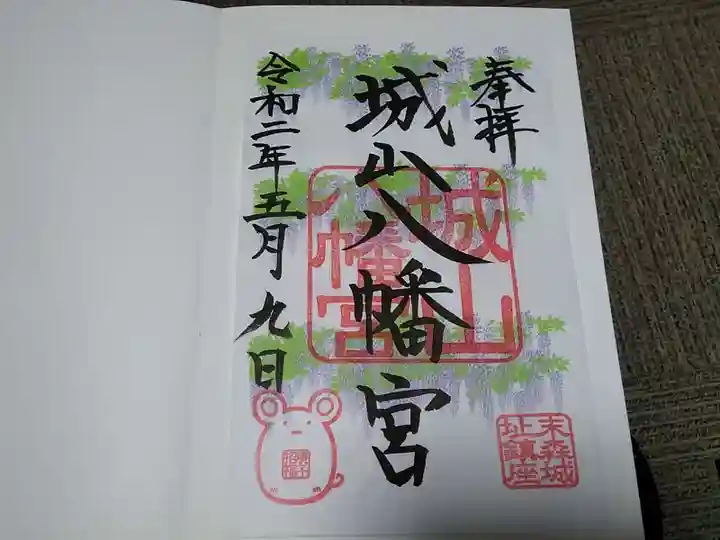 奉拝
城山八幡宮
令和二年五月九日
城山八幡宮
末森城址鎮座